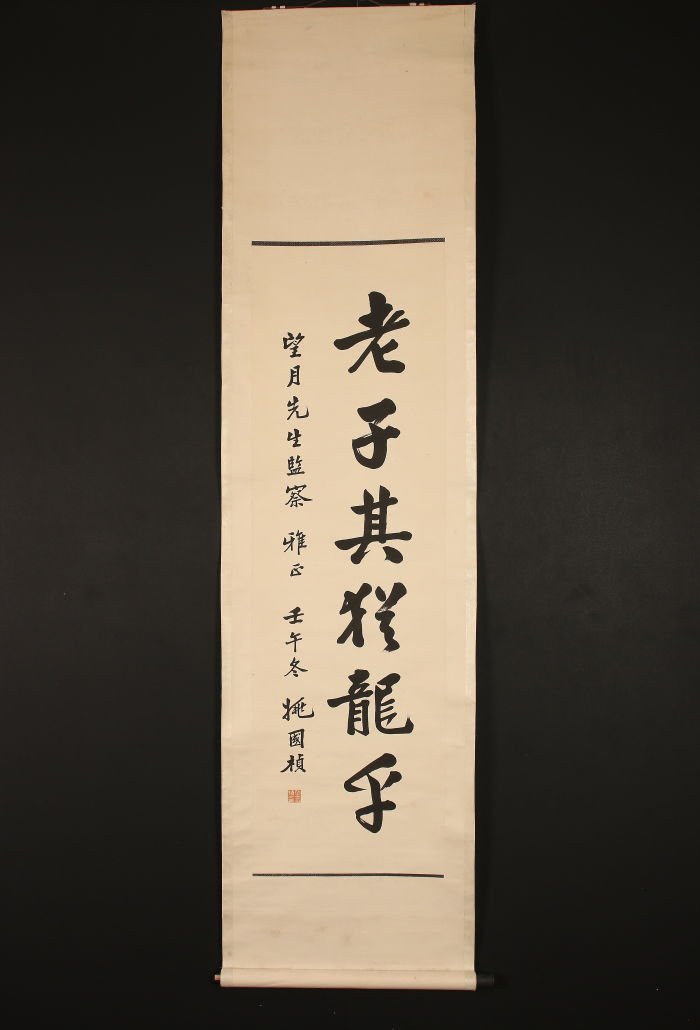 老子其犹龍乎
望月先生監察 雅正 壬午冬 姚國楨